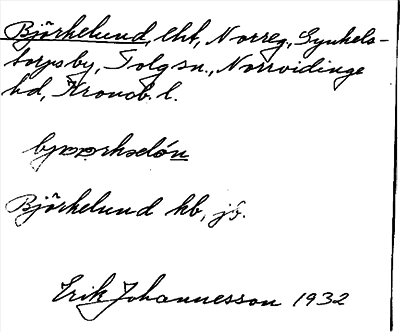 Björkelund, lht, Norreg., Synkels-
torpsby, Tolg sn., Norrvidinge
hd, Kronob. l.
Björkelund hb, jö.
Erik Johannesson 1932